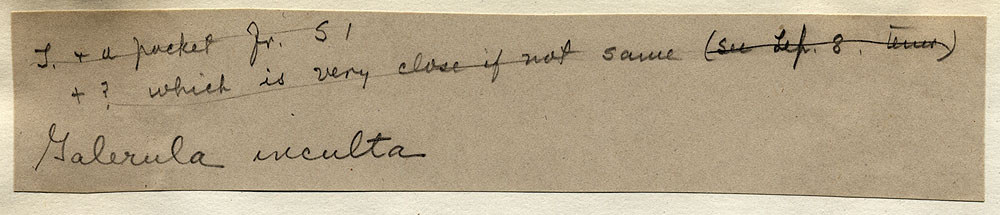 T. + a pocket Fr. S 1
+ ? which is very close if not same (see Sep. 8.
Galerula inculta